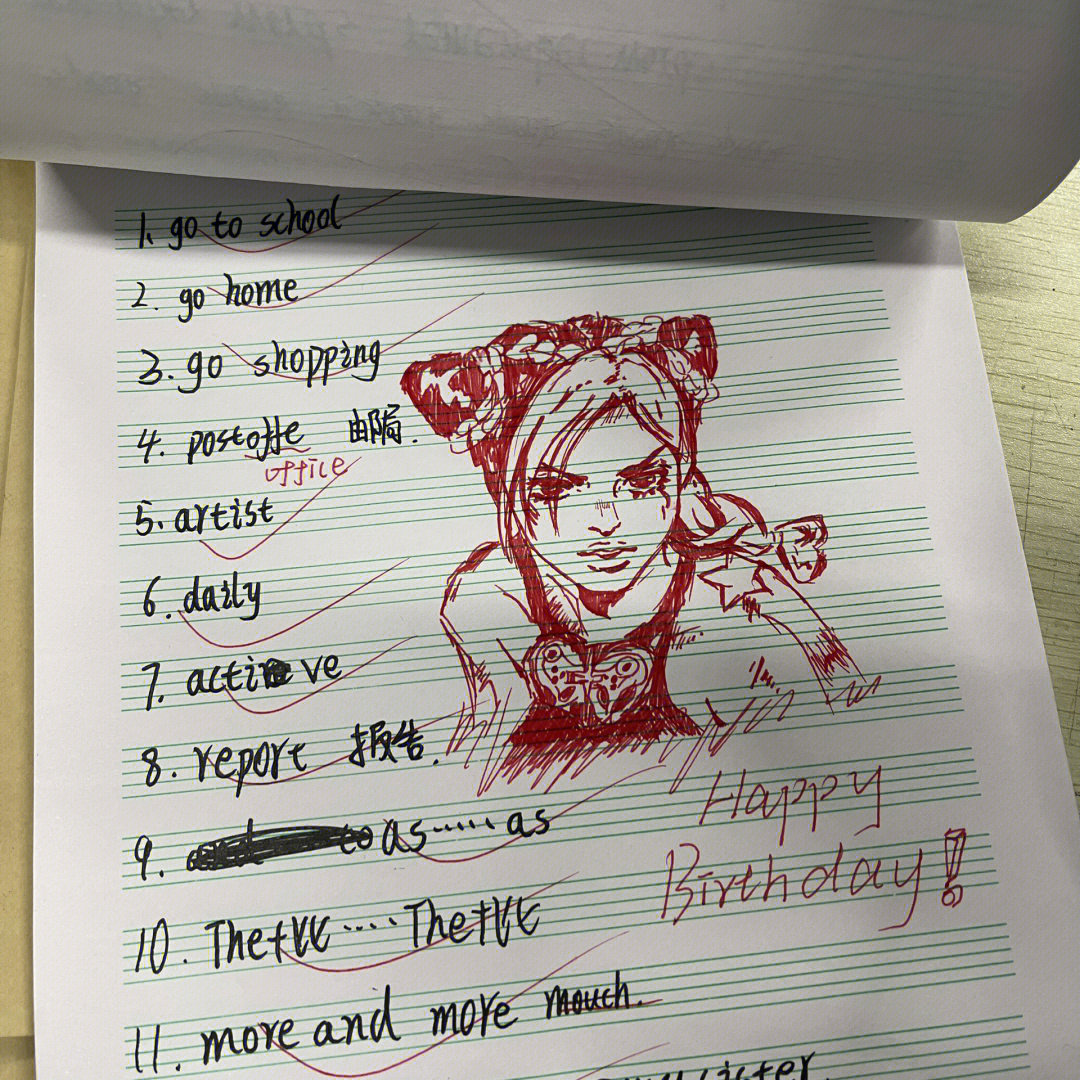 1. go to school
2. go home
3. go shopping
4. postoffe 邮局.
office
5. artist
6. daily
7. active
8. report 报告.
9. to as.....as
Happy
10. The+比 .... The+比
Birthday!
11. more and more mouch.
sister.